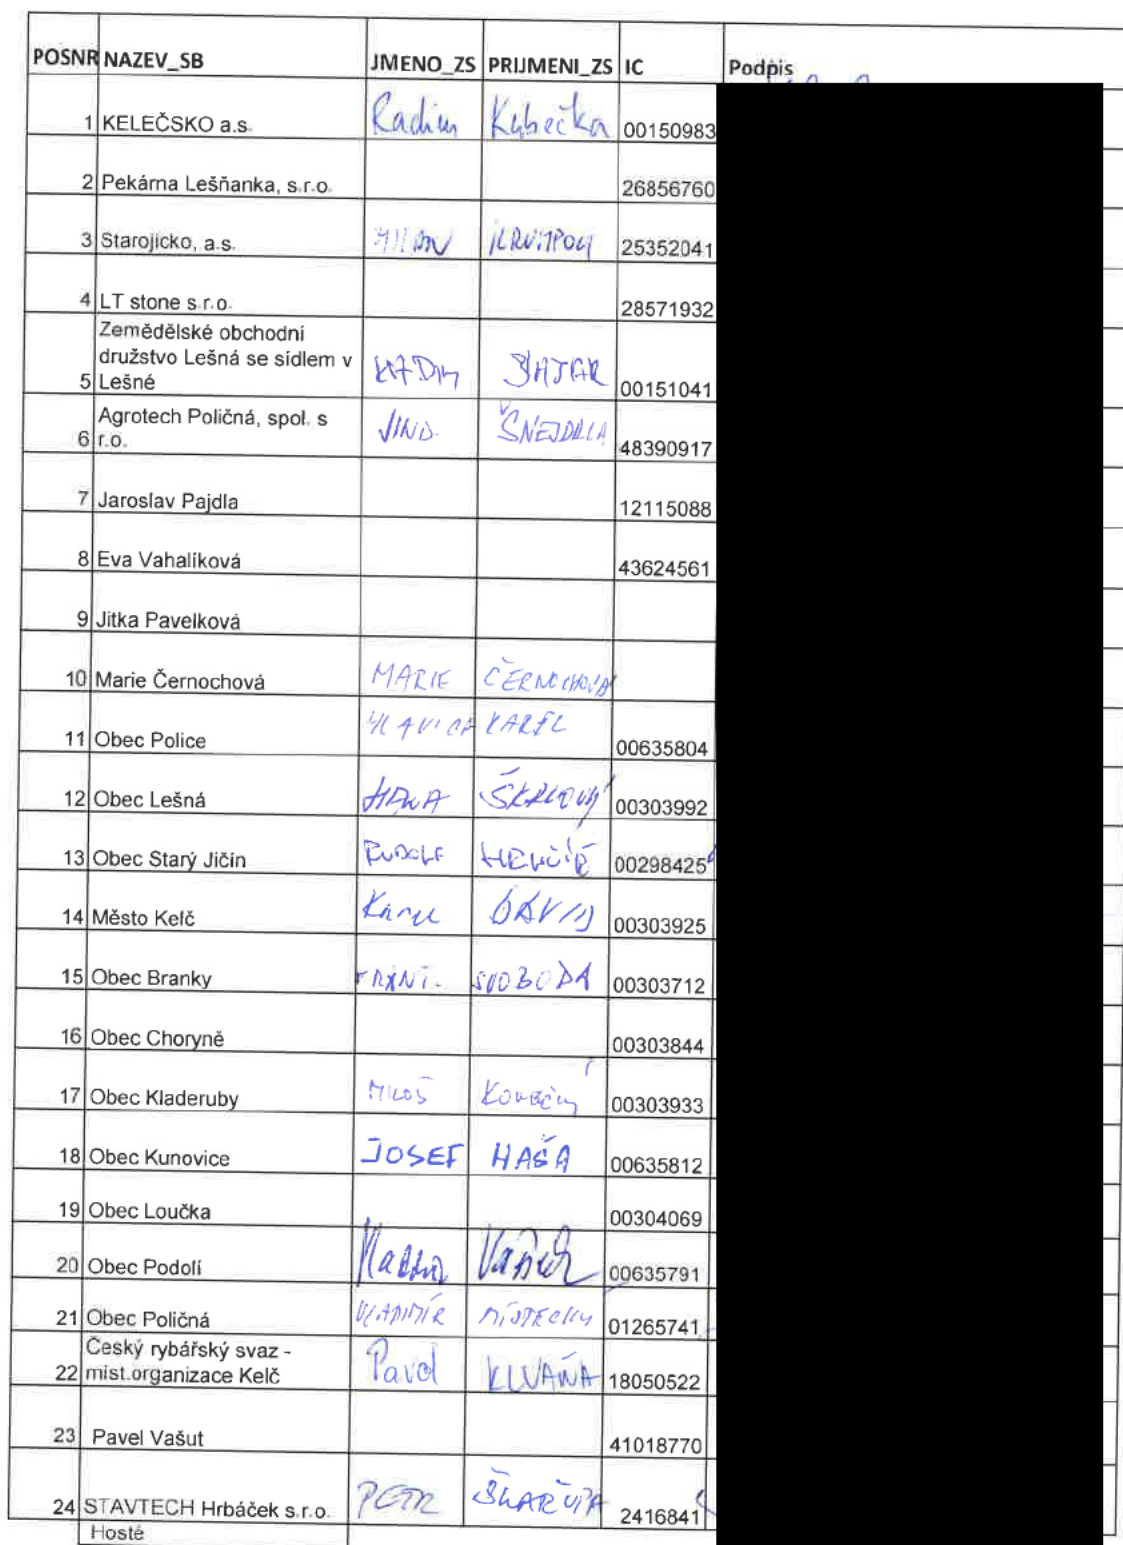 POSNR NAZEV_SB JMENO_ZS PRIJMENI_ZS IC Podpis
1 KELEČSKO a.s. Radim Kubečka 00150983
2 Pekárna Lešňanka, s.r.o. 26856760
3 Starojicko, a.s. MILAN 25352041
4 LT stone s.r.o. 28571932
Zemědělské obchodní
družstvo Lešná se sídlem v
5 Lešné 00151041
Agrotech Poličná, spol. s
6 r.o. JIND. ŠNEJDRLA 48390917
7 Jaroslav Pajdla 12115088
8 Eva Vahalíková 43624561
9 Jitka Pavelková
10 Marie Černochová MARIE ČERNOCHOVÁ
11 Obec Police HLAVICA KAREL 00635804
12 Obec Lešná 00303992
13 Obec Starý Jičín RUDOLF 00298425
14 Město Kelč Karel DAVID 00303925
15 Obec Branky FRANT. SVOBODA 00303712
16 Obec Choryně 00303844
17 Obec Kladeruby MILOŠ 00303933
18 Obec Kunovice JOSEF HAŠA 00635812
19 Obec Loučka 00304069
20 Obec Podolí 00635791
21 Obec Poličná VLADIMÍR MÍSTECKÝ 01265741
Český rybářský svaz -
22 míst.organizace Kelč Pavel KLVAŇA 18050522
23 Pavel Vašut 41018770
24 STAVTECH Hrbáček s.r.o. PETR ŠKAŘUPA 2416841
Hosté